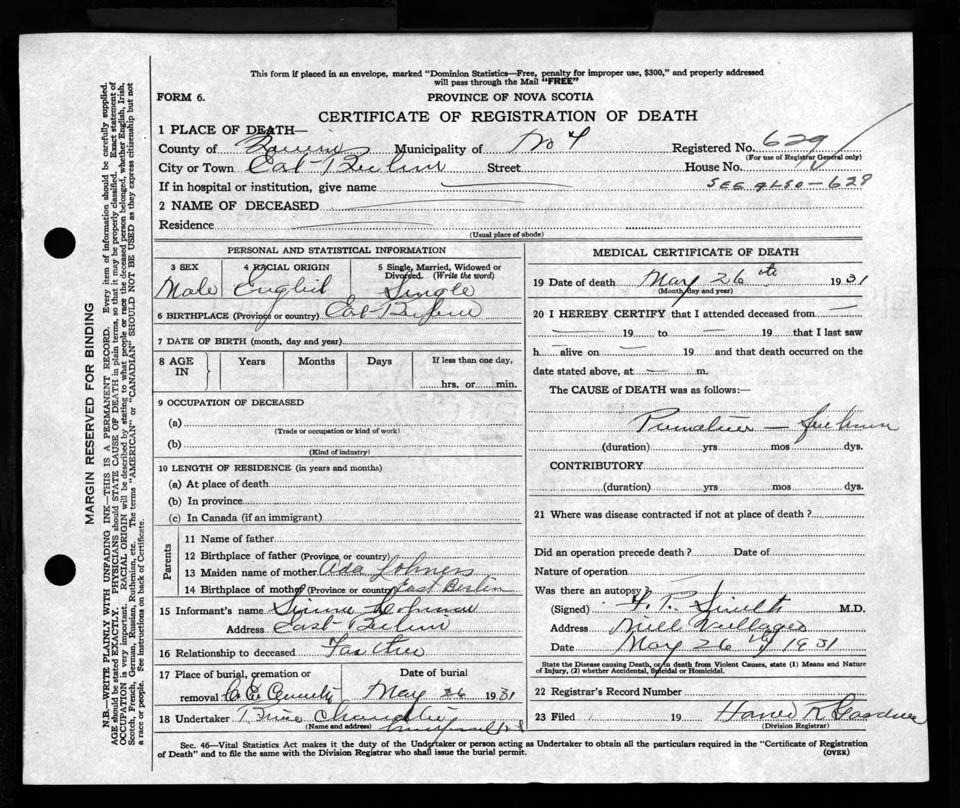 This form if placed in an envelope, marked "Dominion Statistics—Free, penalty for improper use, $300," and properly addressed
will pass through the Mail "FREE"
FORM 6.
PROVINCE OF NOVA SCOTIA
CERTIFICATE OF REGISTRATION OF DEATH
1 PLACE OF DEATH—
County of Municipality of No 4 Registered No. 629
(For use of Registrar General only)
City or Town East Berlin Street House No.
If in hospital or institution, give name SEE ALSO - 628
2 NAME OF DECEASED
Residence
(Usual place of abode)
PERSONAL AND STATISTICAL INFORMATION
3 SEX 4 RACIAL ORIGIN 5 Single, Married, Widowed or
Divorced. (Write the word)
Male English Single
6 BIRTHPLACE (Province or country) East Berlin
7 DATE OF BIRTH (month, day and year)
8 AGE IN Years Months Days If less than one day,
hrs. or min.
9 OCCUPATION OF DECEASED
(a)
(Trade or occupation or kind of work)
(b)
(Kind of industry)
10 LENGTH OF RESIDENCE (in years and months)
(a) At place of death
(b) In province
(c) In Canada (if an immigrant)
Parents
11 Name of father
12 Birthplace of father (Province or country)
13 Maiden name of mother Ada
14 Birthplace of mother (Province or country) East Berlin
15 Informant's name
Address East Berlin
16 Relationship to deceased
17 Place of burial, cremation or Date of burial
removal May 26 1931
18 Undertaker
(Name and address)
MEDICAL CERTIFICATE OF DEATH
19 Date of death May 26th 1931
(Month, day and year)
20 I HEREBY CERTIFY that I attended deceased from
19 to 19 that I last saw
h alive on 19 and that death occurred on the
date stated above, at m.
The CAUSE of DEATH was as follows:—
(duration) yrs mos dys.
CONTRIBUTORY
(duration) yrs mos dys.
21 Where was disease contracted if not at place of death?
Did an operation precede death? Date of
Nature of operation
Was there an autopsy
(Signed) M.D.
Address Mill Village
Date May 26 1931
State the Disease causing Death, or in death from Violent Causes, state (1) Means and Nature
of Injury, (2) whether Accidental, Suicidal or Homicidal.
22 Registrar's Record Number
23 Filed 19 R Gardner
(Division Registrar)
Sec. 46—Vital Statistics Act makes it the duty of the Undertaker or person acting as Undertaker to obtain all the particulars required in the "Certificate of Registration
of Death" and to file the same with the Division Registrar who shall issue the burial permit. (OVER)
MARGIN RESERVED FOR BINDING
N.B.—WRITE PLAINLY WITH UNFADING INK—THIS IS A PERMANENT RECORD. Every item of information should be carefully supplied.
AGE should be stated EXACTLY. PHYSICIANS should STATE CAUSE OF DEATH in plain terms, so that it may be properly classified. Exact statement of
OCCUPATION is very important. RACIAL ORIGIN will be described by stating to what people or race the deceased person belonged, whether English, Irish,
Scotch, French, German, Russian, Ruthenian, etc. The terms "AMERICAN" or "CANADIAN" SHOULD NOT BE USED as they express citizenship but not
a race or people. See instructions on back of Certificate.